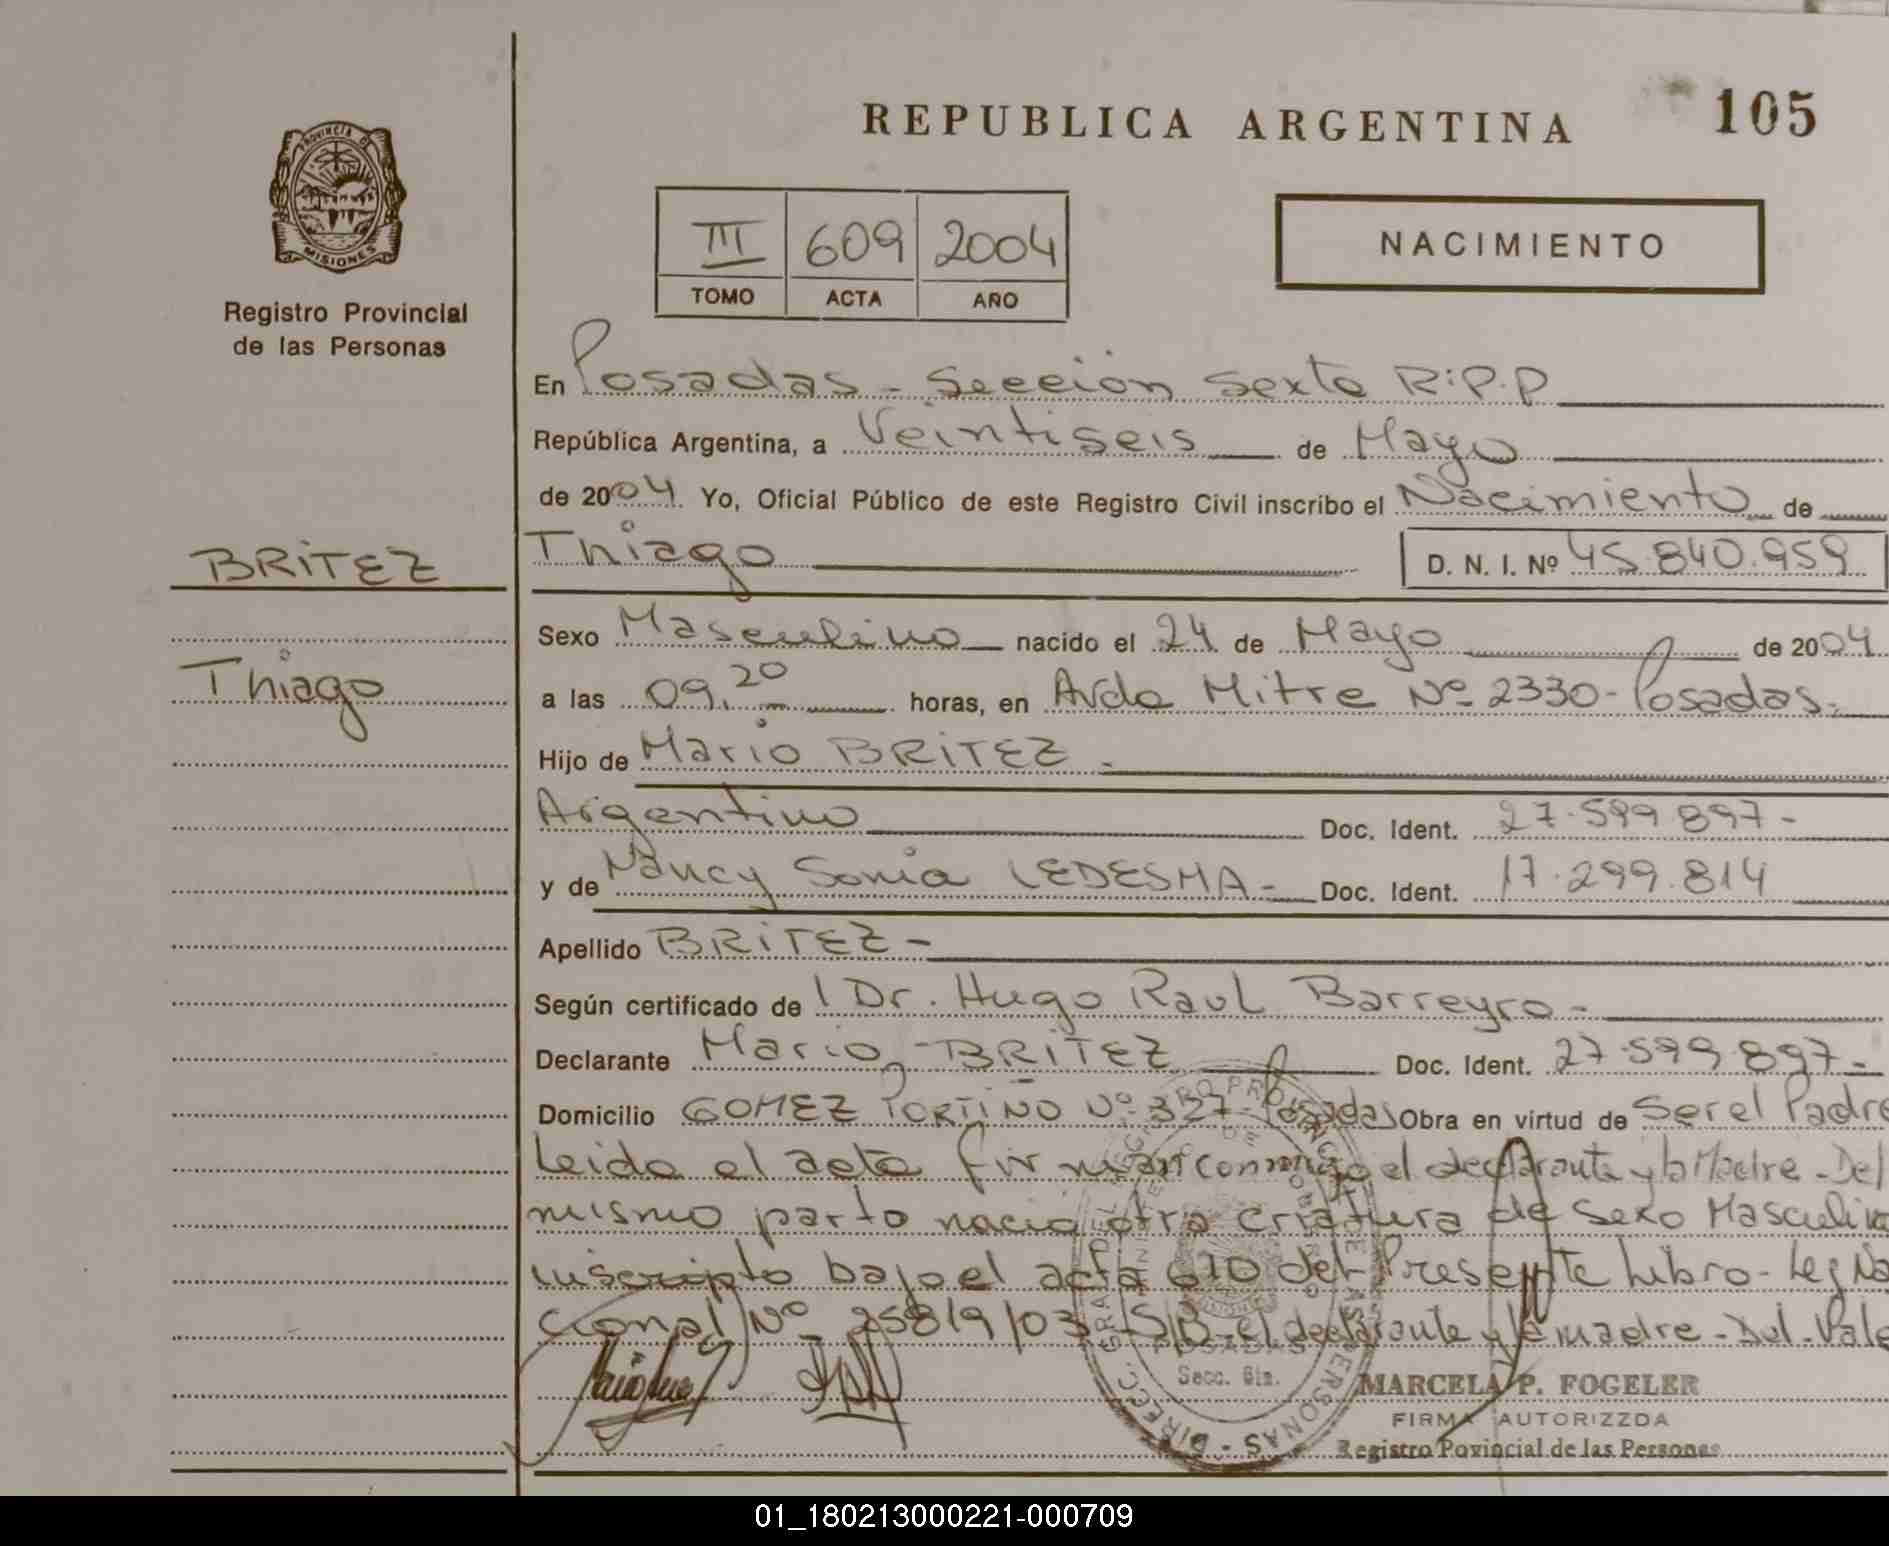 REPUBLICA ARGENTINA
105
PROVINCIA DE
MISIONES
Registro Provincial
de las Personas
III 609 2004
TOMO ACTA AÑO
NACIMIENTO
En Posadas - Sección Sexta R.P.P
República Argentina, a Veintiseis de Mayo
de 2004. Yo, Oficial Público de este Registro Civil inscribo el Nacimiento de
BRITEZ
Thiago
Thiago
D. N. I. Nº 45.840.959
Sexo Masculino nacido el 24 de Mayo de 2004
a las 09.20 horas, en Avda Mitre Nº 2330 - Posadas.
Hijo de Mario BRITEZ -
Argentino Doc. Ident. 27.599.897 -
y de Nancy Sonia LEDESMA - Doc. Ident. 17.299.814
Apellido BRITEZ -
Según certificado de Dr. Hugo Raul Barreyro -
Declarante Mario BRITEZ Doc. Ident. 27.599.897 -
Domicilio GOMEZ PORTIÑO Nº 327 - Posadas Obra en virtud de Ser el Padre
Leida el acta firman conmigo el declarante y la Madre - Del
mismo parto nacio otra criatura de Sexo Masculino
inscripto bajo el acta 610 del Presente Libro - Ley Na
cional Nº 25819/03 - S/B - el declarante y la madre - Dul - Vale
POSADAS
Secc. 6ta.
MARCELA P. FOGELER
FIRMA AUTORIZZDA
Registro Povincial de las Personas
01_180213000221-000709